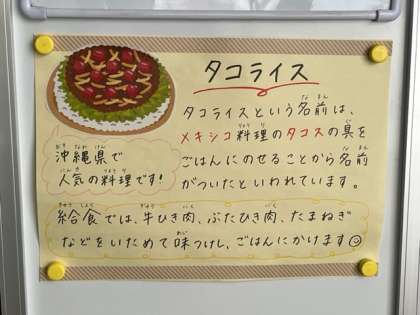 タコライス
タコライスという名前は、
メキシコ料理のタコスの具を
ごはんにのせることから名前
がついたといわれています。
沖縄県で
人気の料理です!
給食では、牛ひき肉、ぶたひき肉、たまねぎ
などをいためて味つけし、ごはんにかけます☺